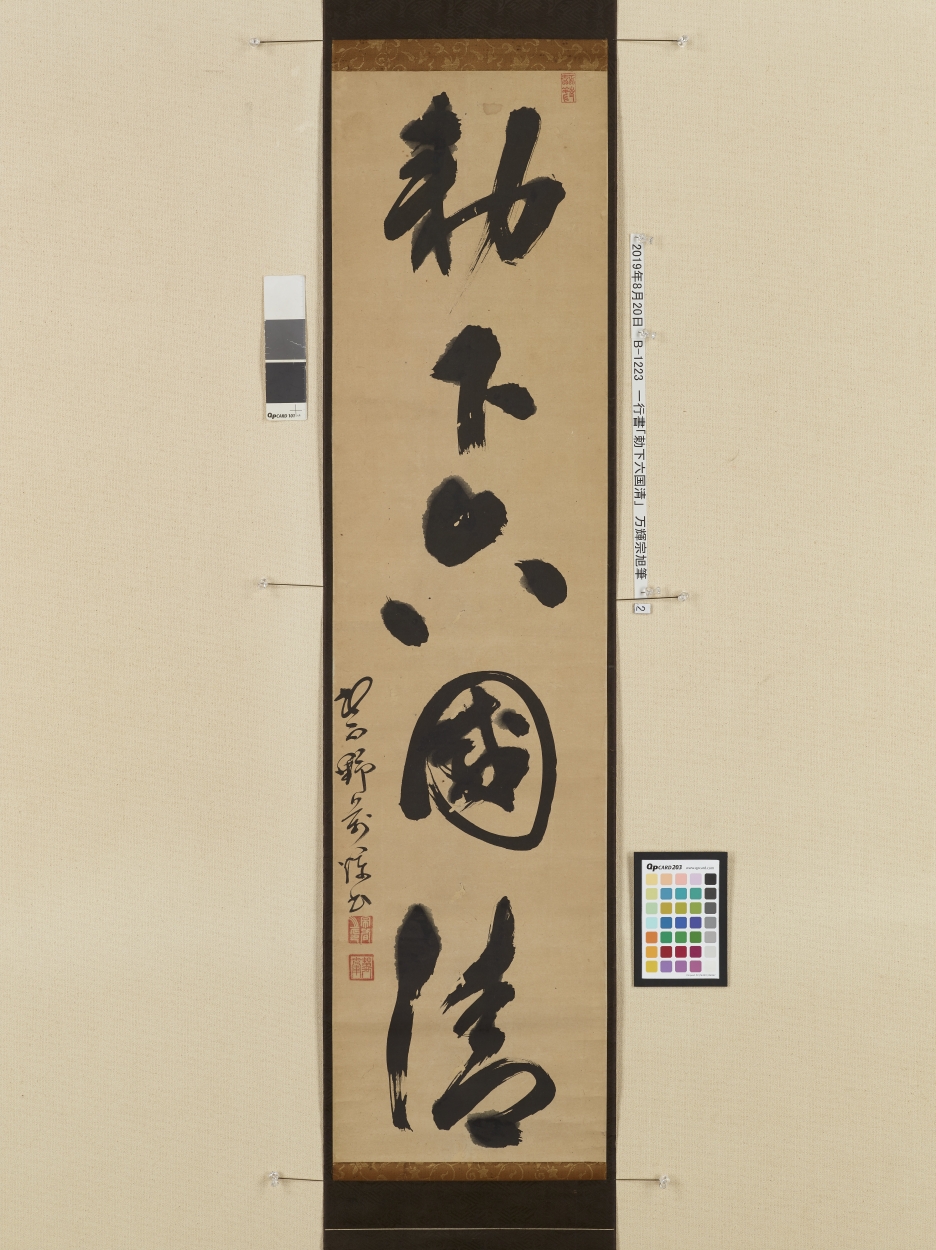 勅下六國清
紫野前
2019年8月20日 B-1223 一行書「勅下六国清」 万輝宗旭筆
2
QpCARD 101
QpCARD 203